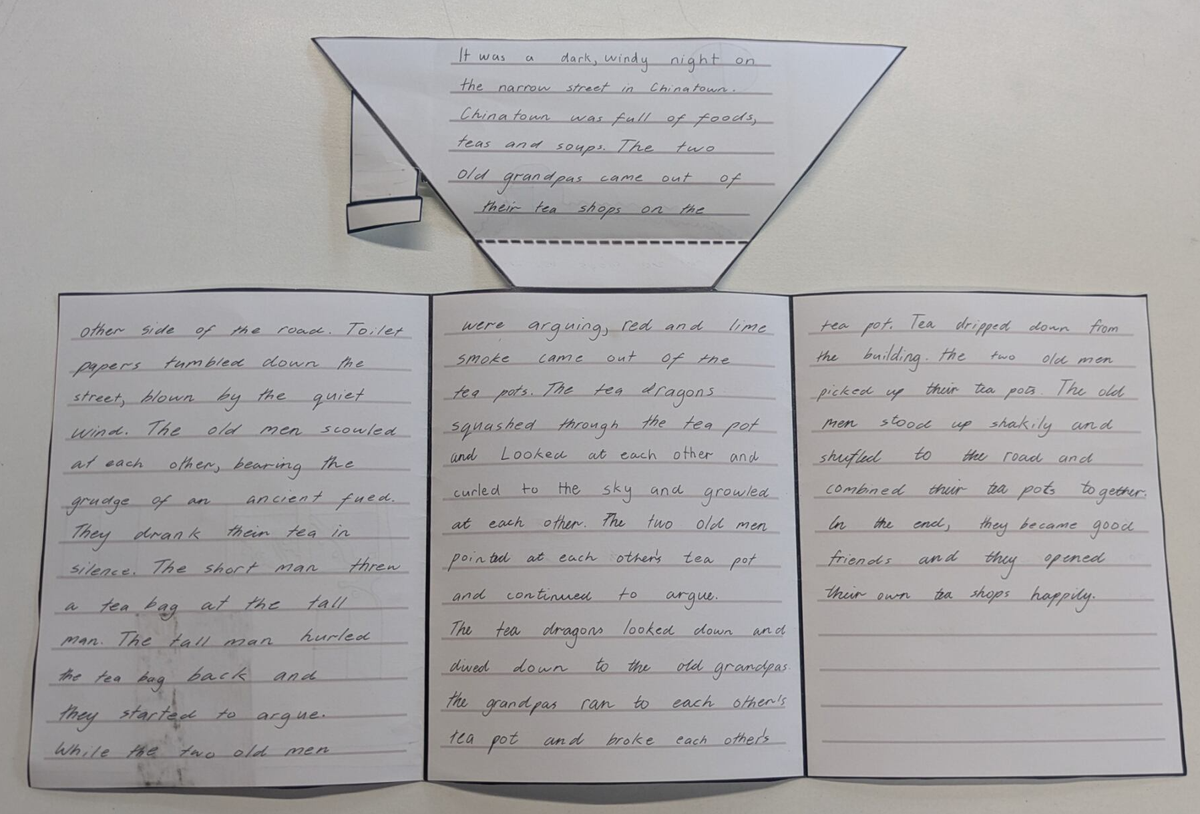 It was a dark, windy night on
the narrow street in Chinatown.
Chinatown was full of foods,
teas and soups. The two
old grandpas came out of
their tea shops on the
other side of the road. Toilet
papers tumbled down the
street, blown by the quiet
wind. The old men scowled
at each other, bearing the
grudge of an ancient fued.
They drank their tea in
silence. The short man threw
a tea bag at the tall
man. The tall man hurled
the tea bag back and
they started to argue.
While the two old men
were arguing, red and lime
smoke came out of the
tea pots. The tea dragons
squashed through the tea pot
and Looked at each other and
curled to the sky and growled
at each other. The two old men
pointed at each other's tea pot
and continued to argue.
The tea dragons looked down and
dived down to the old grandpas.
the grandpas ran to each other's
tea pot and broke each other's
tea pot. Tea dripped down from
the building. the two old men
picked up their tea pots. The old
men stood up shakily and
shuffled to the road and
combined their tea pots together.
In the end, they became good
friends and they opened
their own tea shops happily.